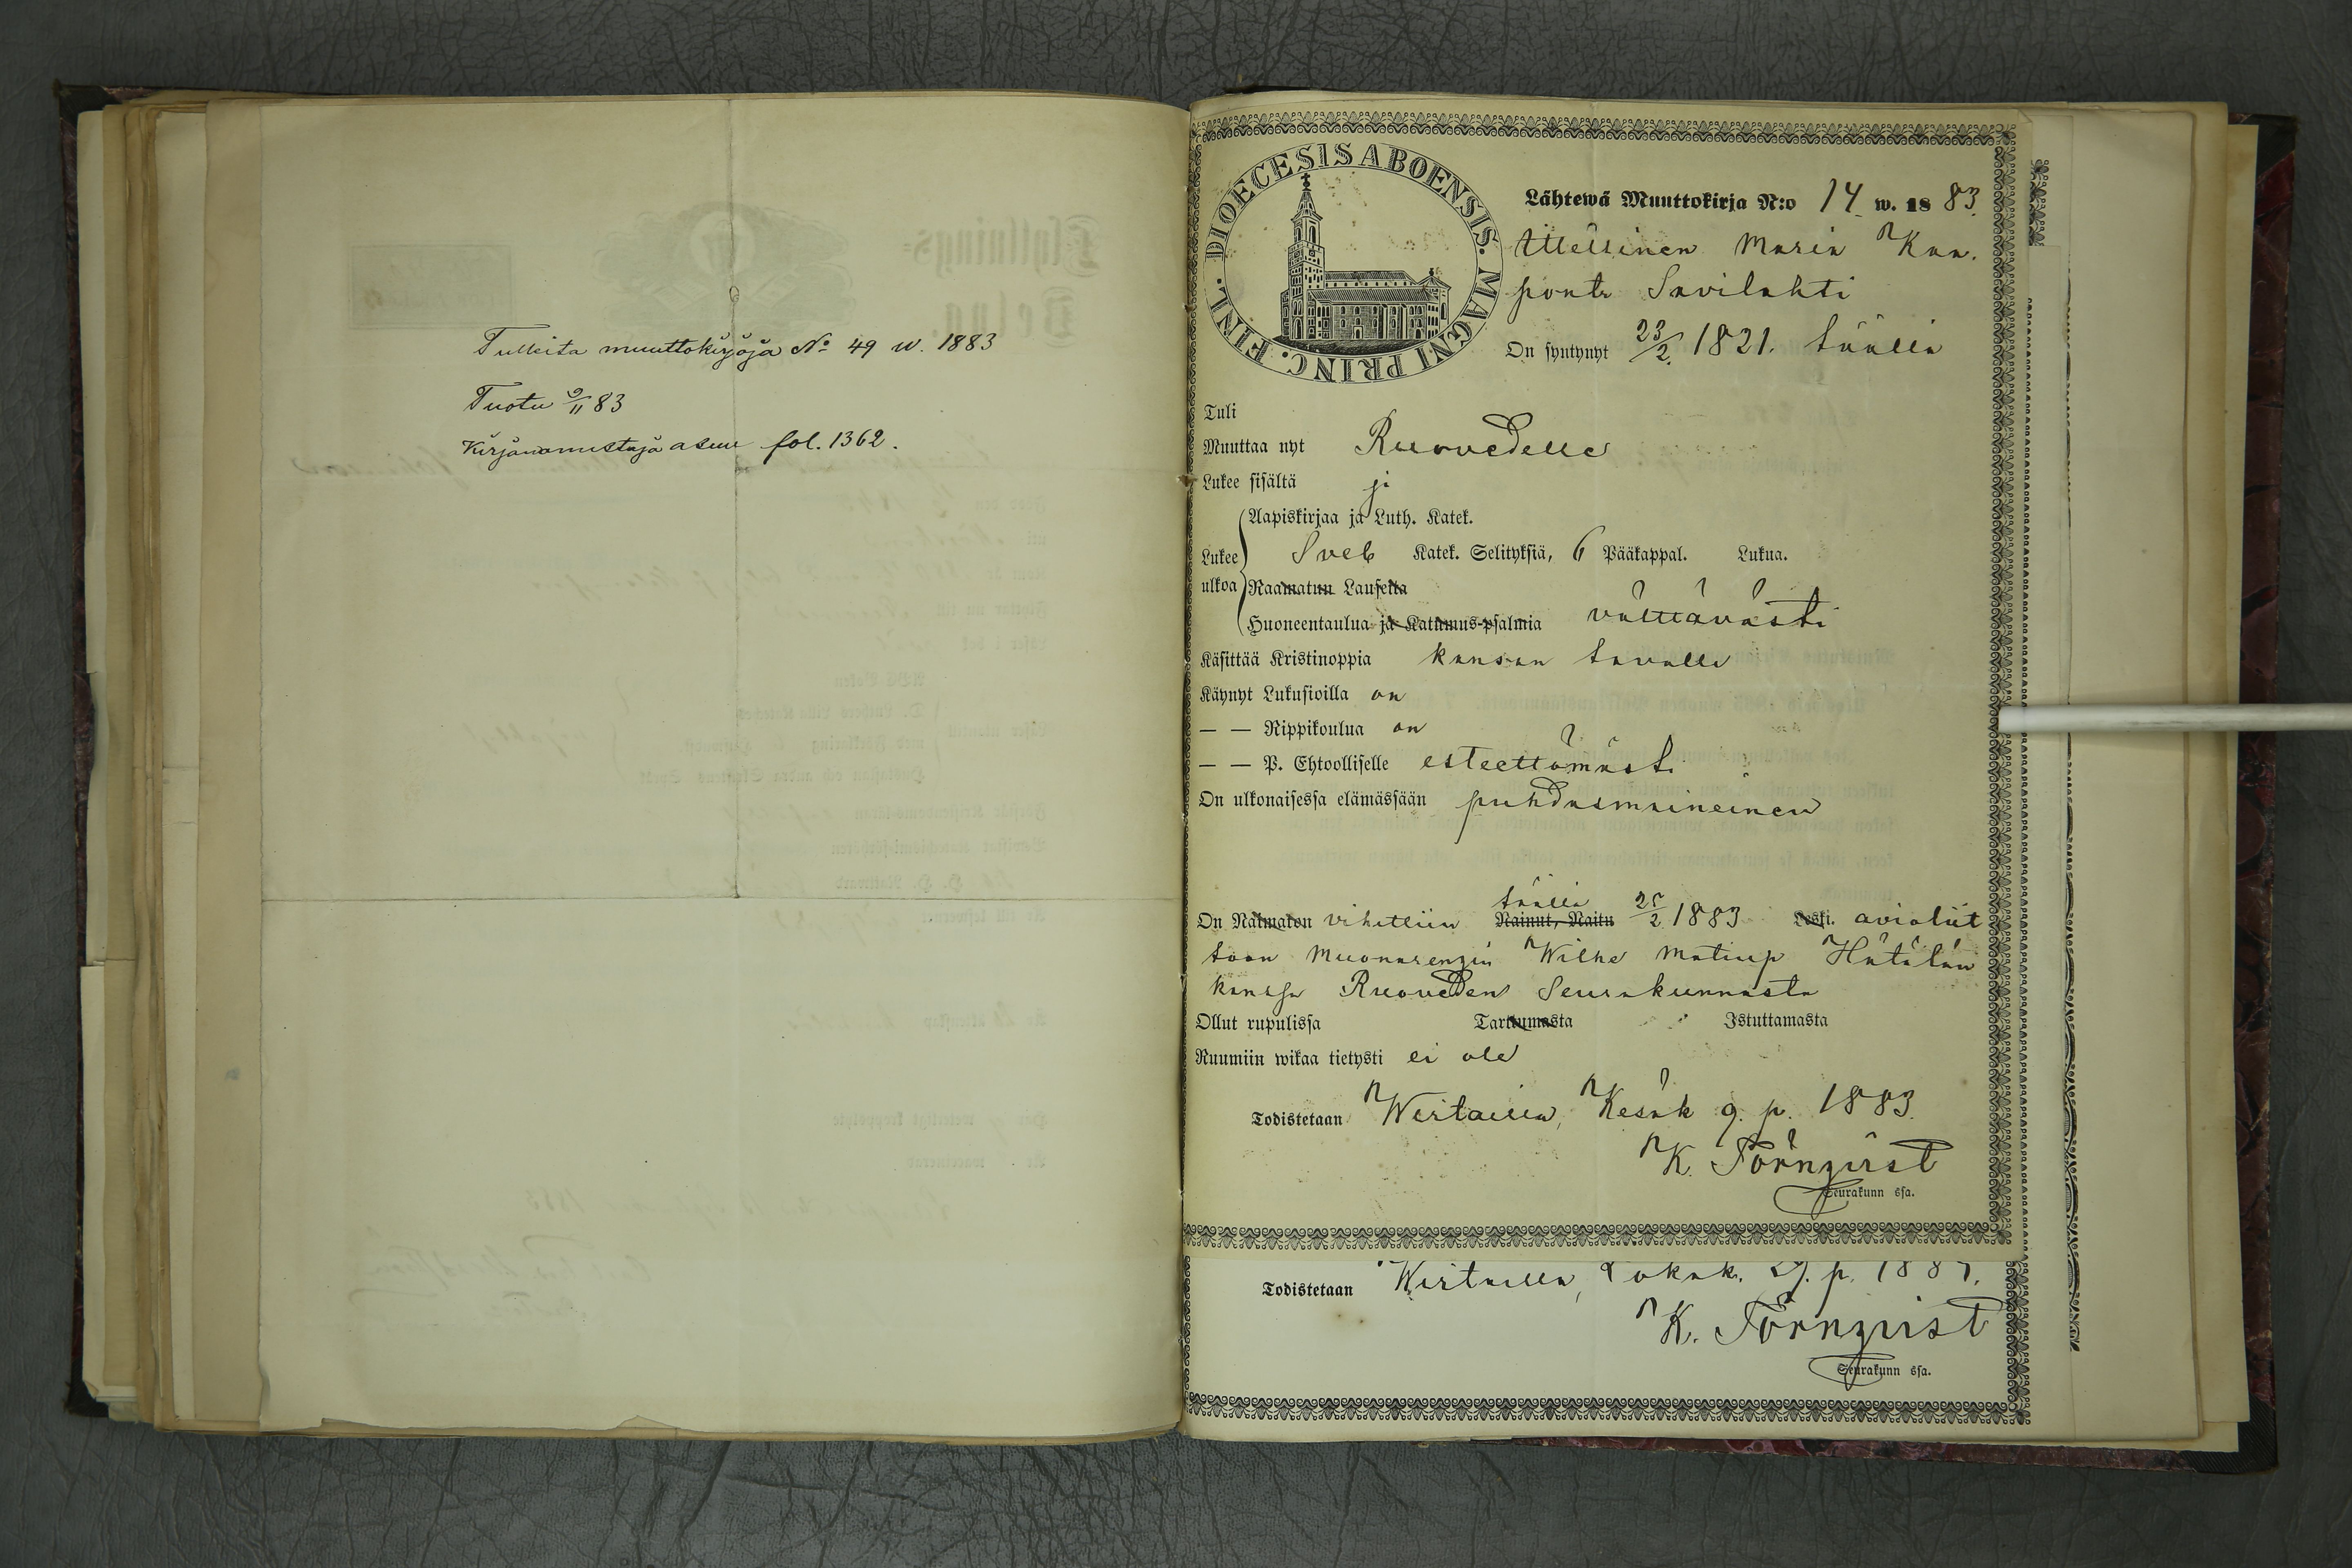 Tulleita muuttokirjoja No 49 w. 1883
Tuotu 9/11 83
Kirjanomistaja asuu fol. 1362.
DIOECESIS ABOENSIS. MAGNI PRINC. FINL.
Lähtewä Muuttokirja N:o 14 w. 1883.
Itsellinen Maria Kaa.
pontr Savilahti
On syntynyt 23/2 1821. täällä
Tuli
Muuttaa nyt Ruovedelle
Lukee sisältä ji
Aapiskirjaa ja Luth. Katek.
Lukee ulkoa Sveb Katek. Selityksiä, 6 Pääkappal. Lukua.
Raamatun Lauseita
Huoneentaulua ja Katumus-psalmia välttävästi
Käsittää Kristinoppia kansan tavalla
Käynyt Lukusioilla on
— — Rippikoulua on
— — P. Ehtoolliselle esteettömästi
On ulkonaisessa elämässään puhdasmaineinen
täällä
On Naimaton vihittiin Nainut, Naitu 25/2 1883 Leski. avioliit
toon Muonarengin Wilhe Matinp Hätälän
kanssa Ruoveden Seurakunnasta
Ollut rupulissa Tarttumasta Istuttamasta
Ruumiin wikaa tietysti ei ole
Todistetaan Wirtailla, Kesäk 9. p. 1883.
K. Törnqvist
Seurakunn ssa.
Todistetaan Wirtailla, Lokak. 29. p. 188
K. Törnqvist
Seurakunn ssa.